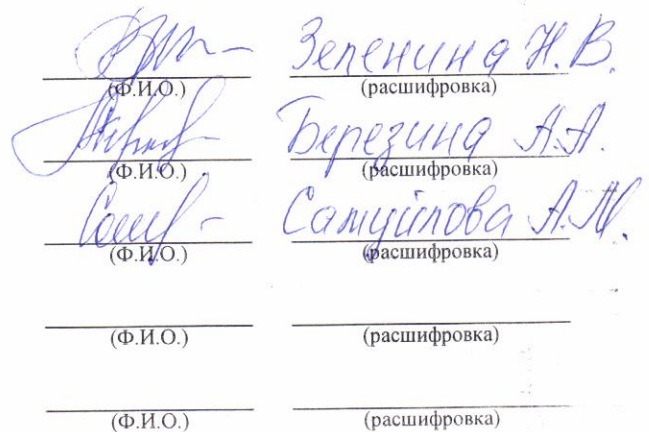 Зеленина Н.В.
(Ф.И.О.) (расшифровка)
Березина А.А.
(Ф.И.О.) (расшифровка)
Самуйлова А.М.
(Ф.И.О.) (расшифровка)
(Ф.И.О.) (расшифровка)
(Ф.И.О.) (расшифровка)